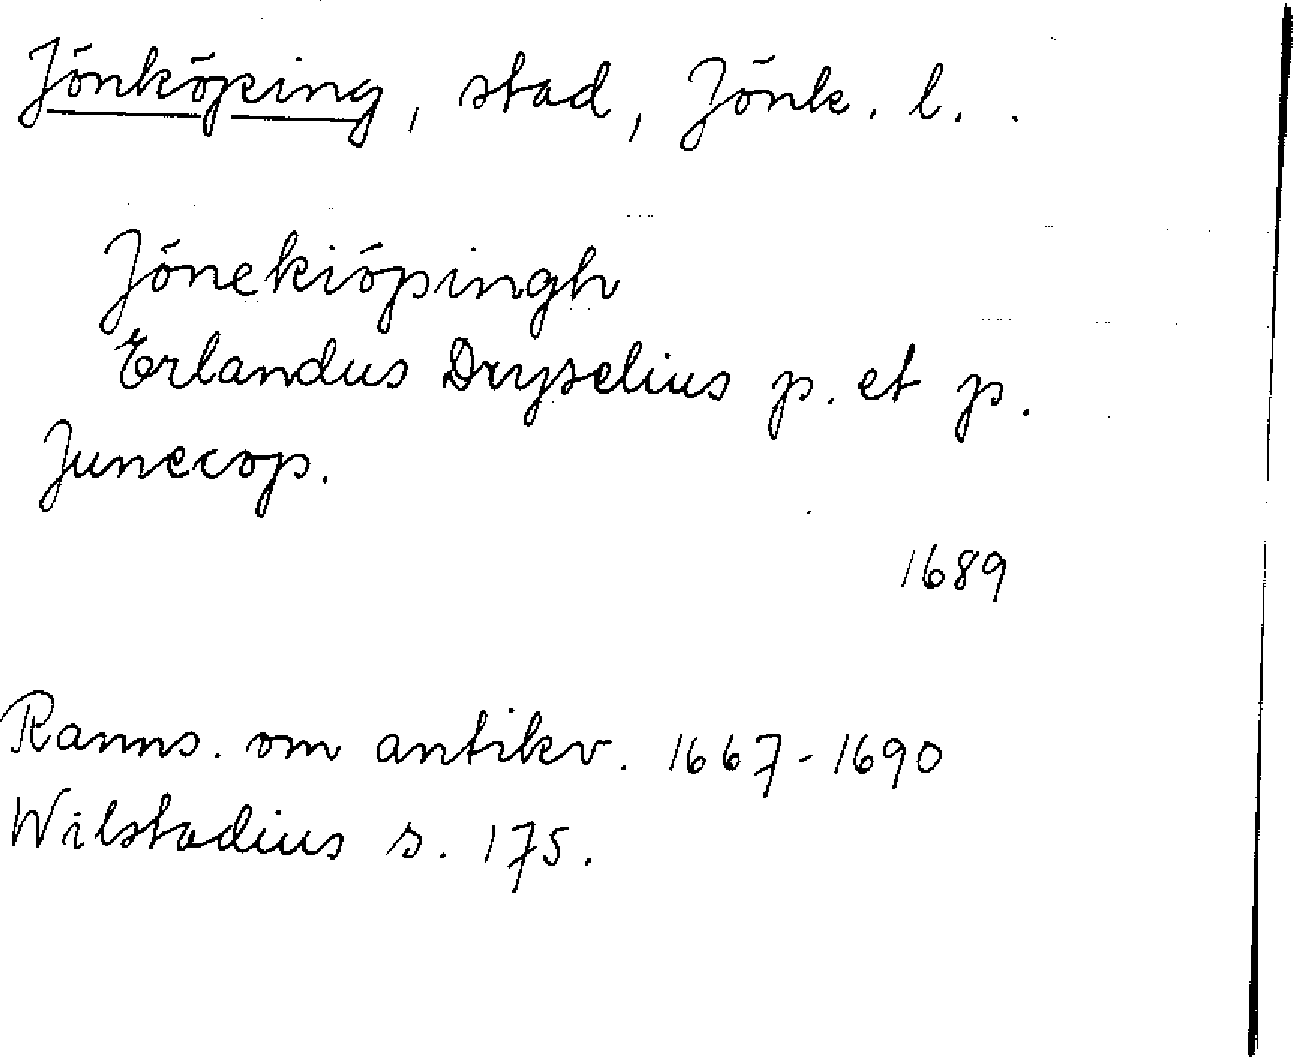 Jönköping, stad, Jönk. l. .
Jönekiöpingh
Erlandus Dryselius p. et p.
Junecop.
1689
Ranns. om antikv. 1667-1690
Wilstadius s. 175.